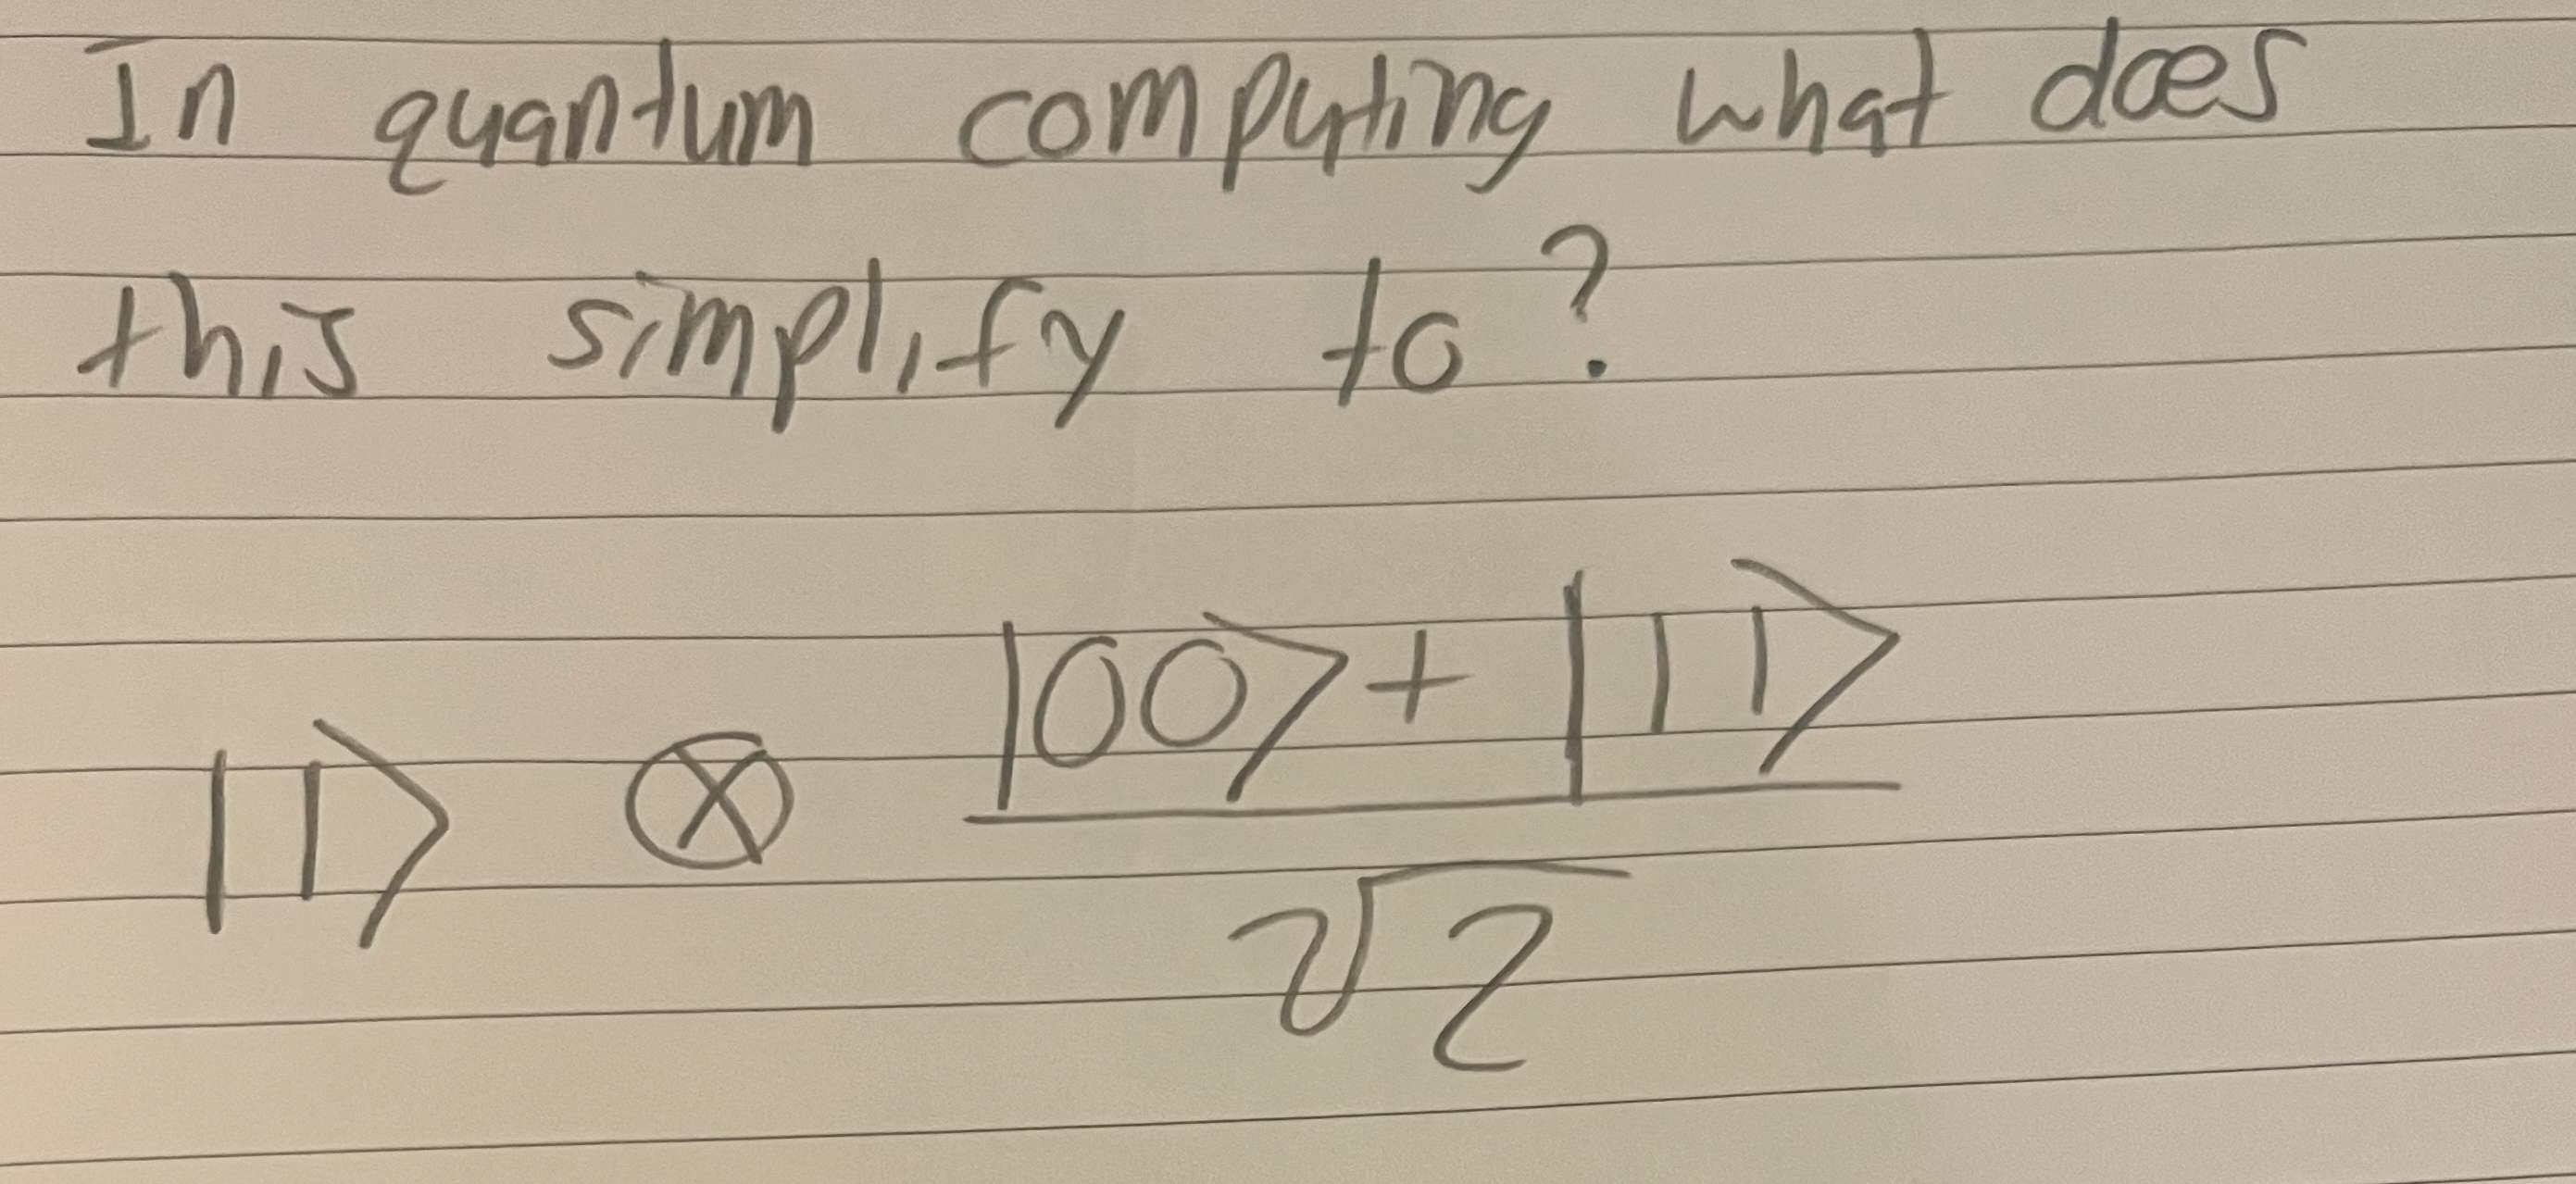 In quantum computing what does
this simplify to?
|1⟩ ⊗ |00⟩+|11⟩
√2